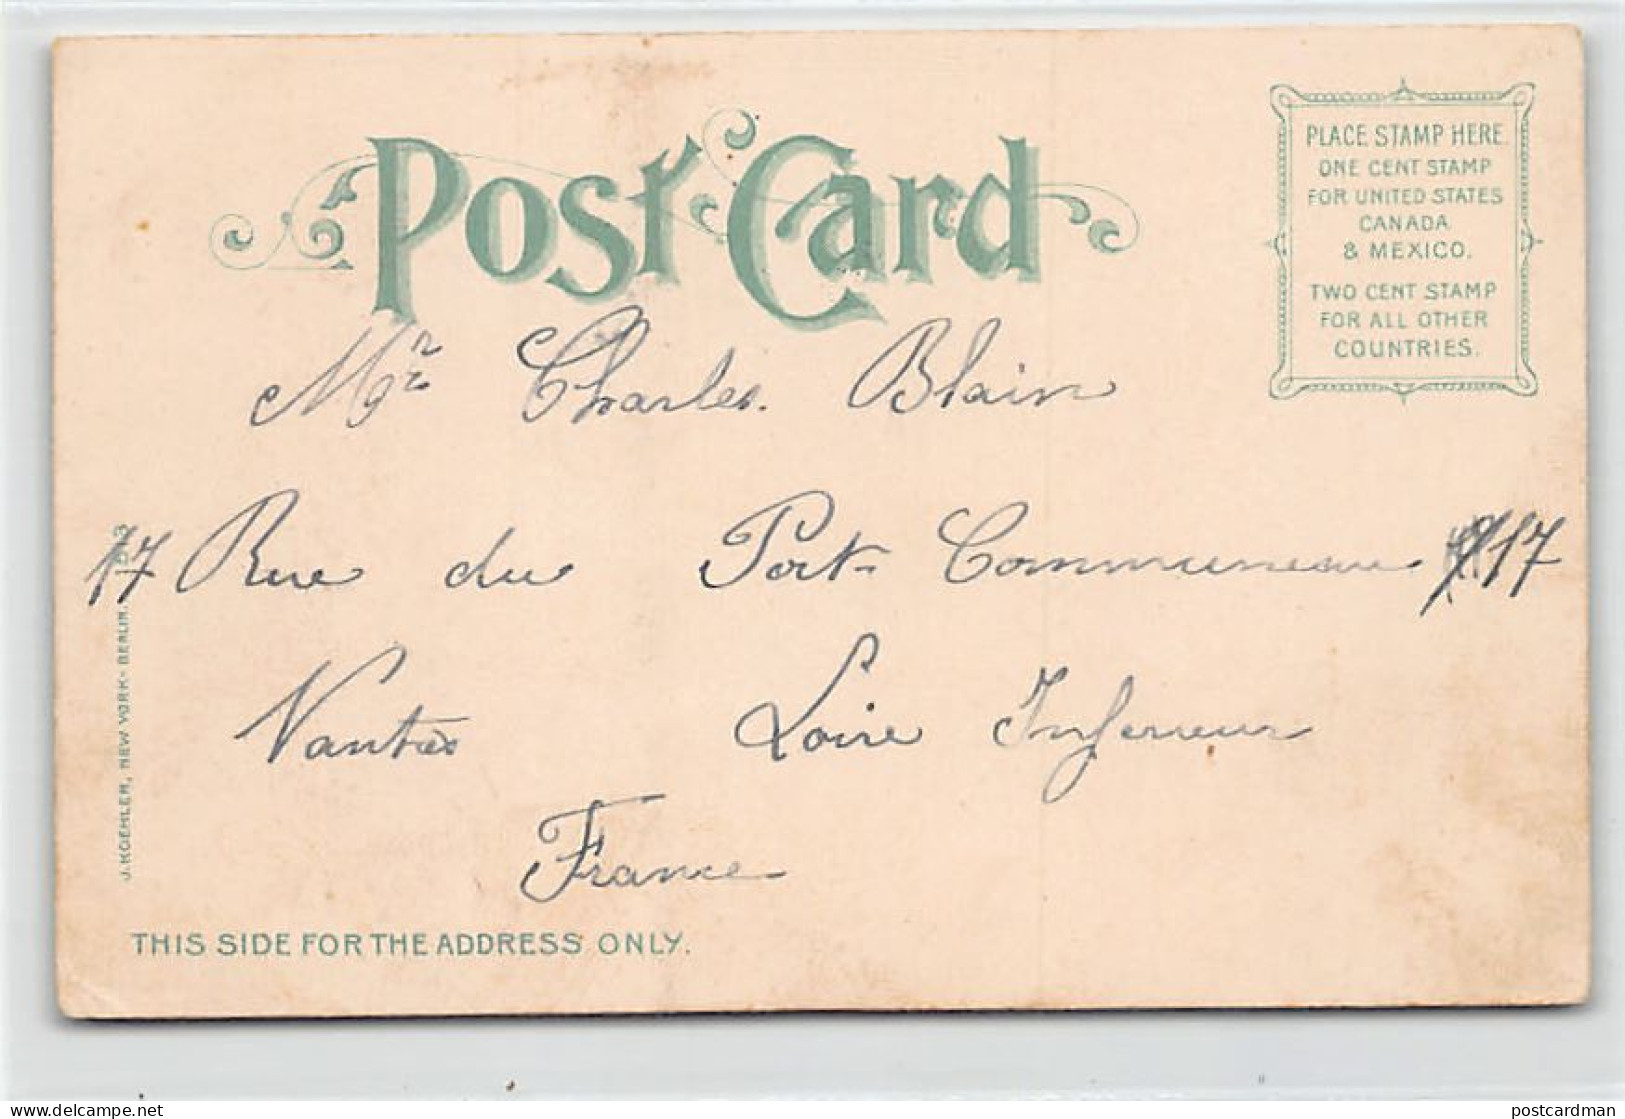 Post Card
PLACE STAMP HERE.
ONE CENT STAMP
FOR UNITED STATES
CANADA
& MEXICO.
TWO CENT STAMP
FOR ALL OTHER
COUNTRIES.
Mr Charles Blain
17 Rue du Port Communeau 17
Nantes Loire Inferieur
France
J. KOEHLER, NEW YORK - BERLIN.
THIS SIDE FOR THE ADDRESS ONLY.
www.delcampe.net
postcardman